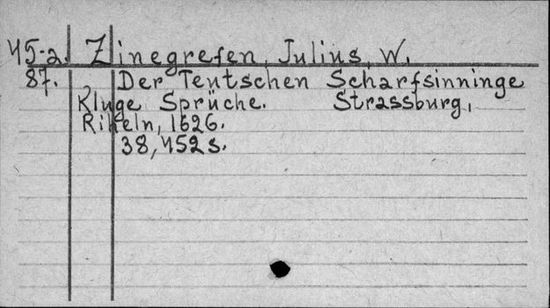 45-a. Zinegrefen, Julius, W.
87. Der Teutschen Scharfsinninge
Kluge Sprüche. Strassburg,
Riheln, 1626.
38, 452 s.